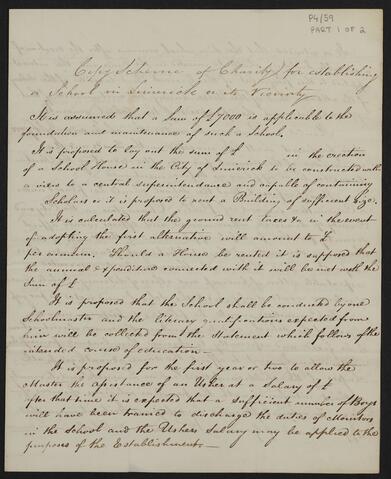 P4/59
PART 1 OF 2
Copy Scheme of Charity for establishing
a School in Limerick or its Vicinity
It is assumed that a Sum of £7000 is applicable to the
foundation and maintenance of such a School.
It is proposed to lay out the sum of £ in the erection
of a School House in the City of Limerick to be constructed with
a view to a central superintendance and capable of containing
Scholars or it is proposed to rent a Building of sufficient size.
It is calculated that the ground rent taxes &c in the event
of adopting the first alternative will amount to £
per annum. Should a House be rented it is supposed that
the annual expenditure connected with it will be met with the
Sum of £
It is proposed that the School shall be conducted by one
Schoolmaster and the literary qualifications expected from
him will be collected from the Statement which follows of the
intended course of education—
It is proposed for the first year or two to allow the
Master the assistance of an Usher at a Salary of £
after that time it is expected that a sufficient number of Boys
will have been trained to discharge the duties of Monitors
in the School and the Ushers Salary may be applied to the
purposes of the Establishment—